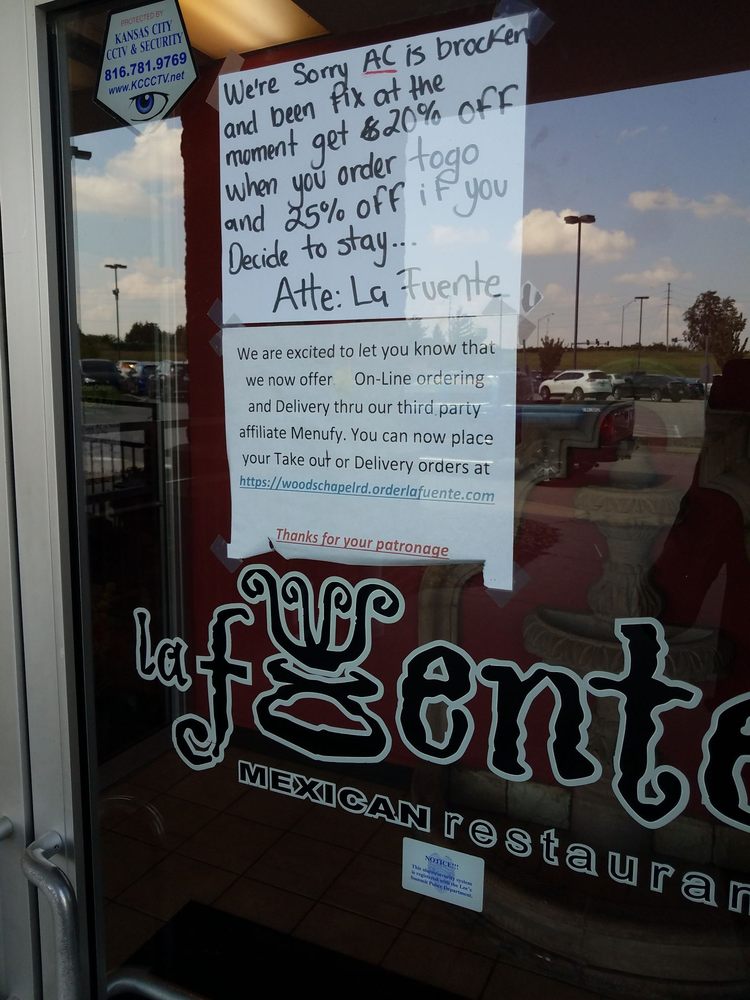 PROTECTED BY
KANSAS CITY
CCTV & SECURITY
816.781.9769
www.KCCCTV.net
We're Sorry AC is brocken
and been fix at the
moment get $20% off
when you order togo
and 25% off if you
Decide to stay...
Atte: La Fuente
We are excited to let you know that
we now offer On-Line ordering
and Delivery thru our third party
affiliate Menufy. You can now place
your Take out or Delivery orders at
https://woodschapelrd.orderlafuente.com
Thanks for your patronage
la fuente
MEXICAN restauran
NOTICE!!!
This alarm/security system
is registered with the Lee's
Summit Police Department.